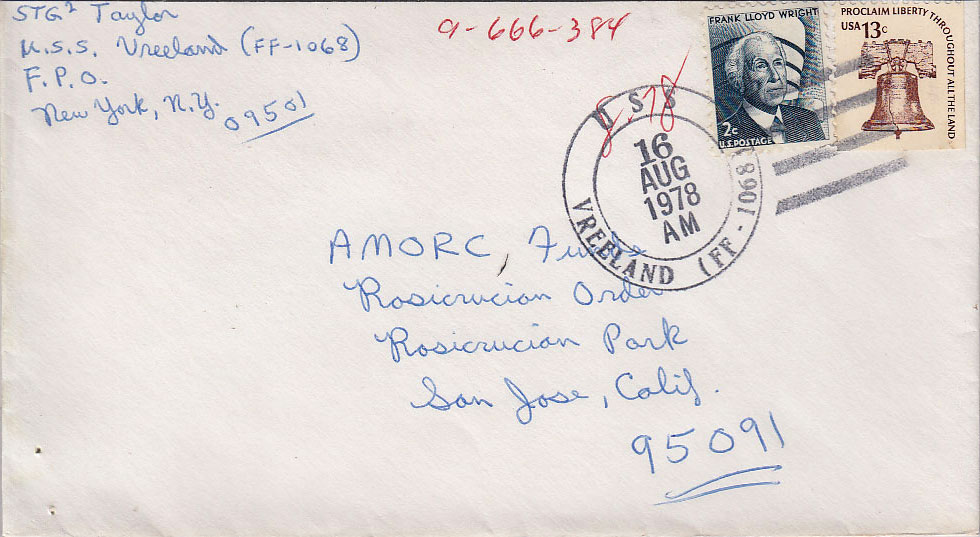 STG2 Taylor
U.S.S. Vreeland (FF-1068)
F.P.O.
New York, N.Y. 09501
9-666-384
8.78
FRANK LLOYD WRIGHT
2c
U.S. POSTAGE
PROCLAIM LIBERTY THROUGHOUT ALL THE LAND
USA 13c
USS VREELAND (FF-1068)
16
AUG
1978
AM
AMORC,
Rosicrucian Order
Rosicrucian Park
San Jose, Calif.
95091